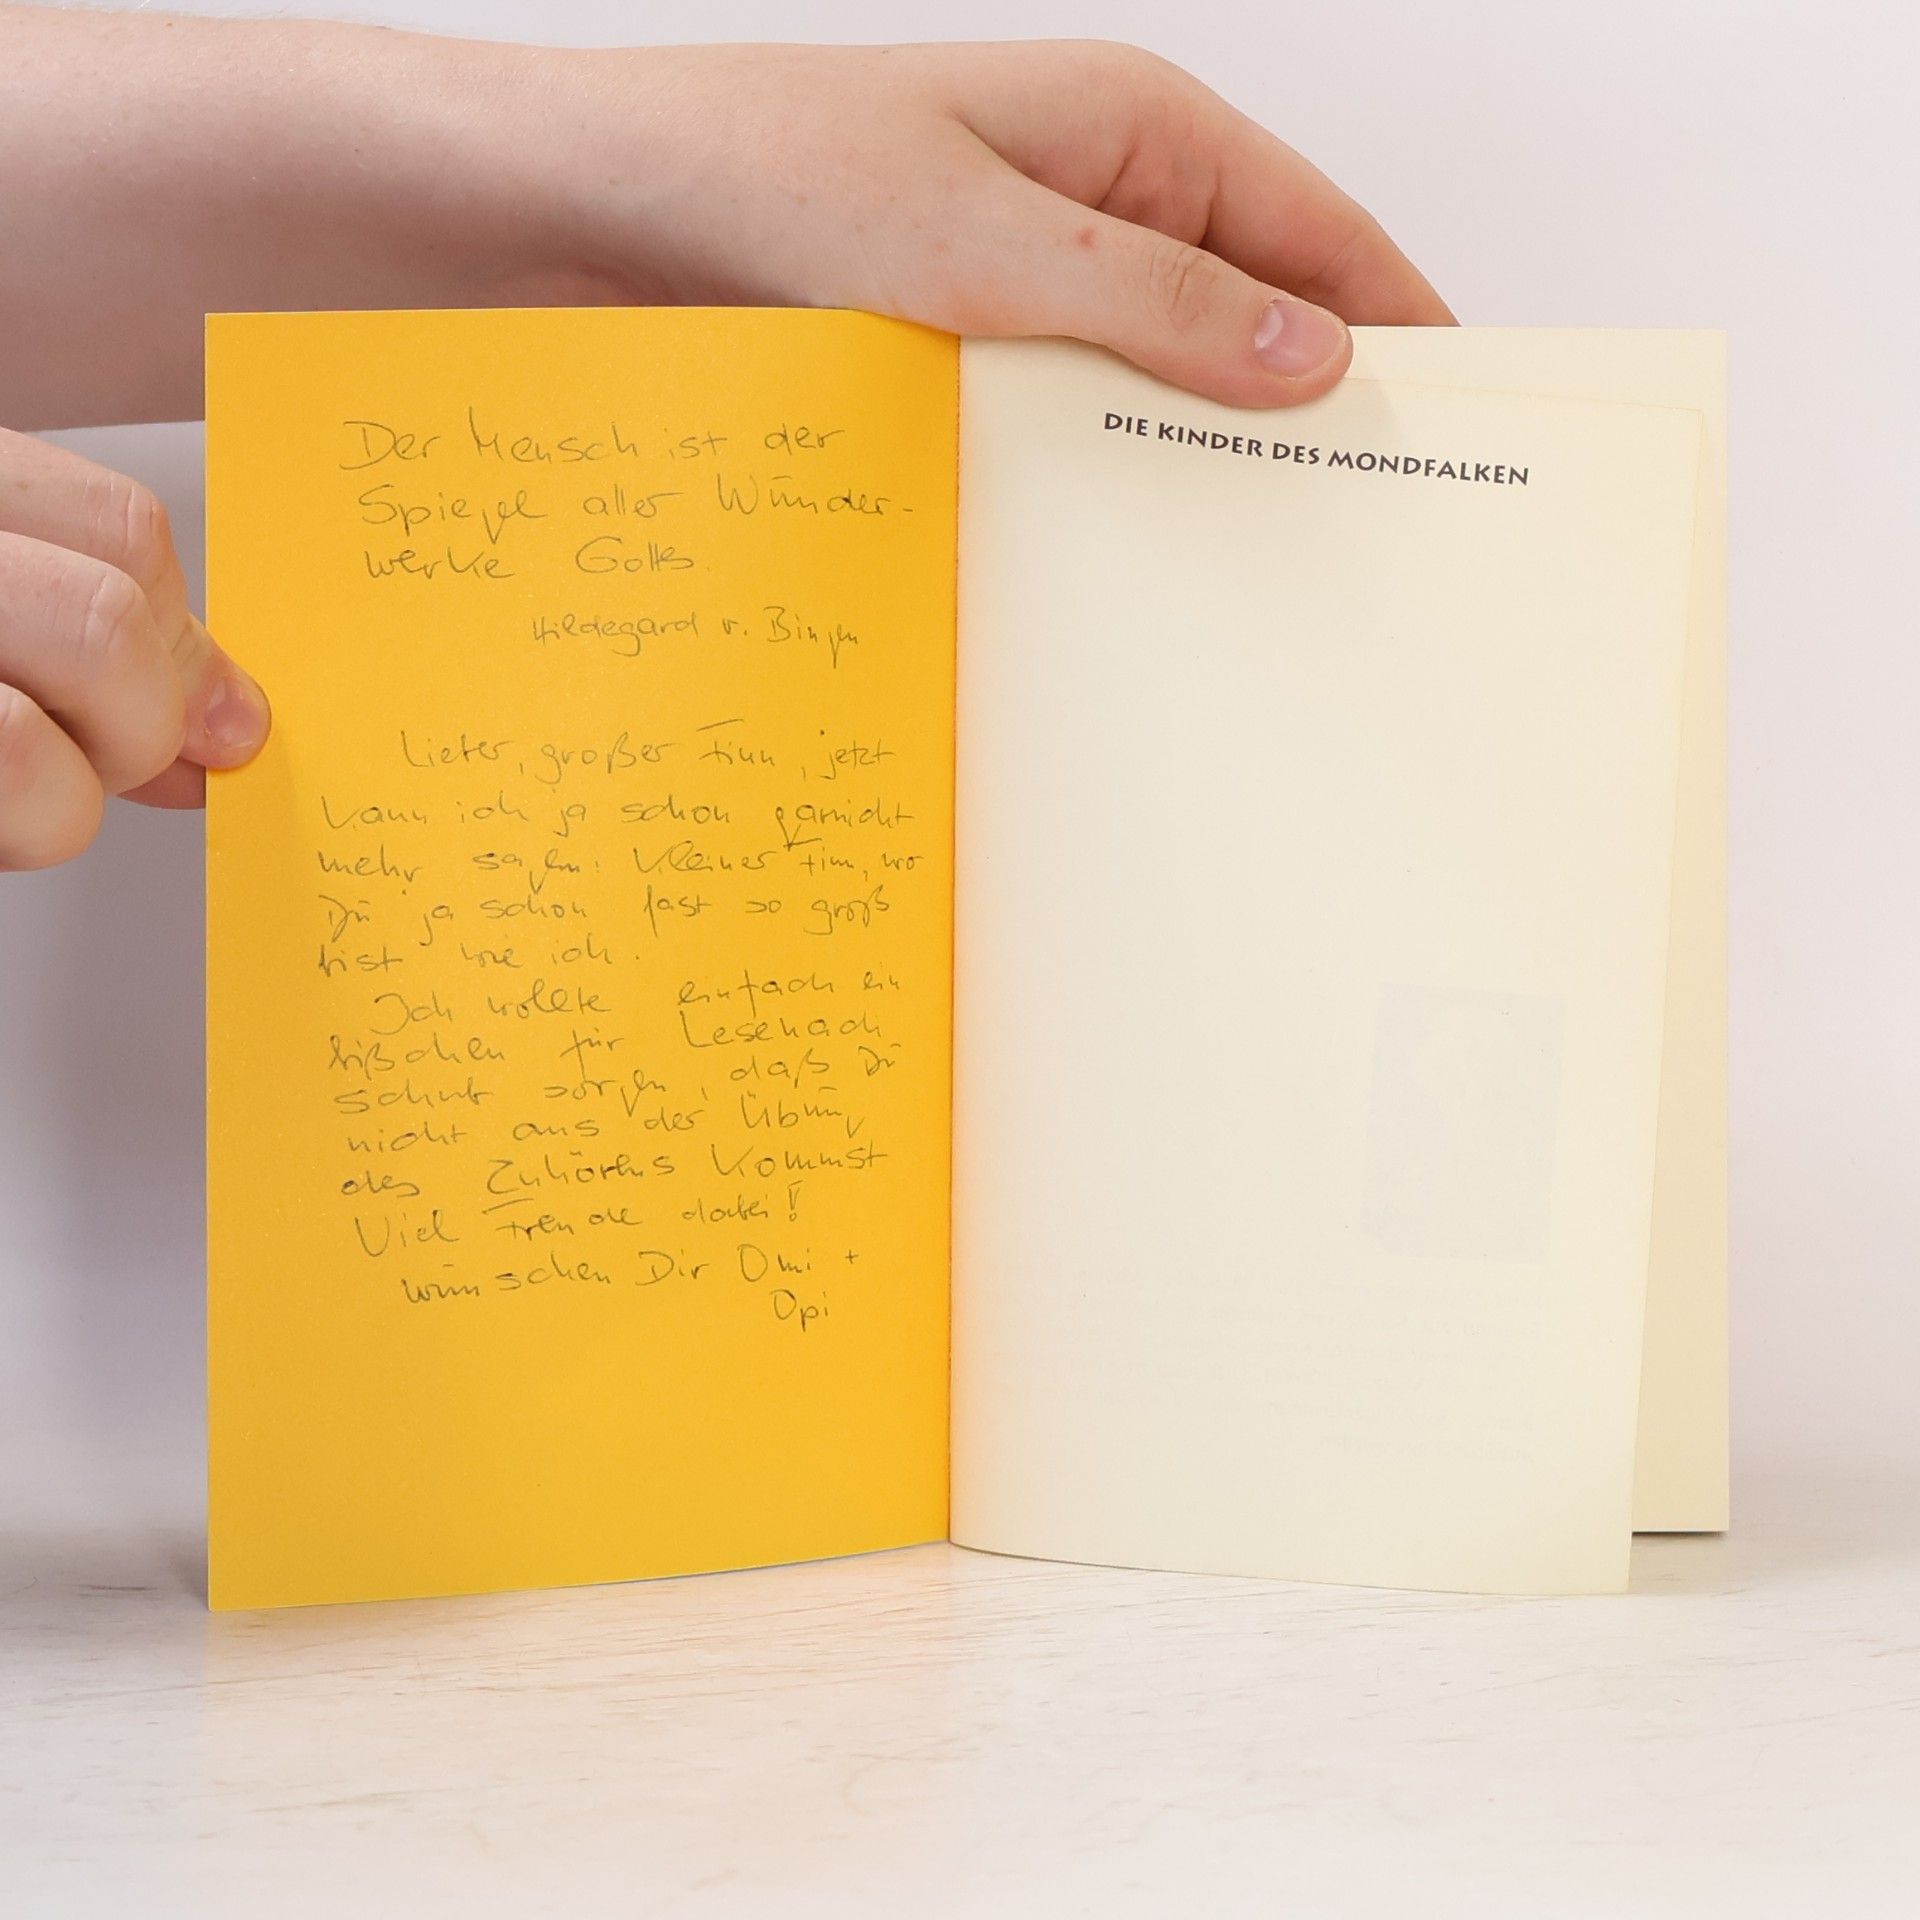 Der Mensch ist der
Spiegel aller Wunder-
werke Gottes.
Hildegard v. Bingen
Lieber, großer Finn, jetzt
kann ich ja schon garnicht
mehr sagen: Kleiner Finn, wo
Du ja schon fast so groß
bist wie ich.
Ich wollte einfach ein
bißchen für Lesenach
schub sorgen, daß Du
nicht aus der Übung
des Zuhörens kommst
Viel Freude dabei!
wünschen Dir Omi +
Opi
DIE KINDER DES MONDFALKEN